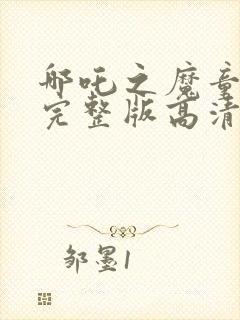 哪吒之魔童
完整版高清
邹墨1